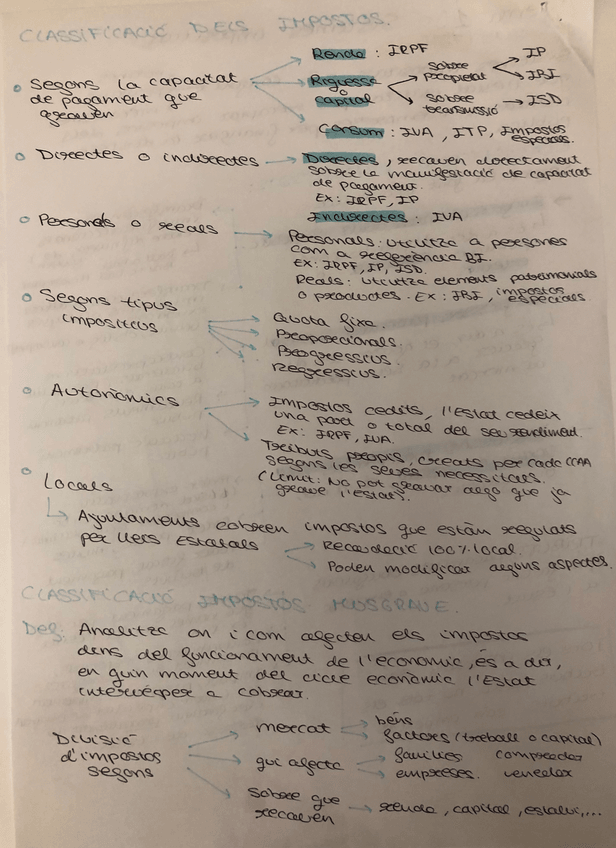 CLASSIFICACIÓ DELS IMPOSTOS.
Segons la capacitat
de pagament que
graven
Renda : IRPF
Riquesa
o
capital
sobre
propietat
IP
IBI
sobre
transmissió
ISD
Consum : IVA, ITP, Impostos
especials.
Directes o indirectes
Directes, recauen directament
sobre la manifestació de capacitat
de pagament.
EX: IRPF, IP
Indirectes : IVA
Personals o reals
Personals: utilitza a persones
com a referència BI.
EX: IRPF, IP, ISD.
Reals: utilitza elements patrimonials
o productes. EX: IBI, impostos
especials.
Segons tipus
impositius
Quota fixa.
Proporcionals.
Progressius.
Regressius.
Autonòmics
Impostos cedits, l'Estat cedeix
una part o total del seu rendiment.
EX: IRPF, IVA.
Tributs propis, creats per cada CCAA
segons les seves necessitats.
(Límit: No pot gravar algo que ja
grave l'estat).
Locals
Ajuntaments cobren impostos que estàn regulats
per lleis estatals
Recaudació 100% local.
Poden modificar alguns aspectes.
CLASSIFICACIÓ IMPOSTOS MUSGRAVE.
Def: Analitza on i com afecten els impostos
dins del funcionament de l'economia, és a dir,
en quin moment del cicle econòmic l'Estat
intervé per a cobrar.
Divisió
d'impostos
segons
mercat
béns
factors (treball o capital)
qui afecta
famílies comprador
empreses. venedor
Sobre que
recauen
renda, capital, estalvi,...